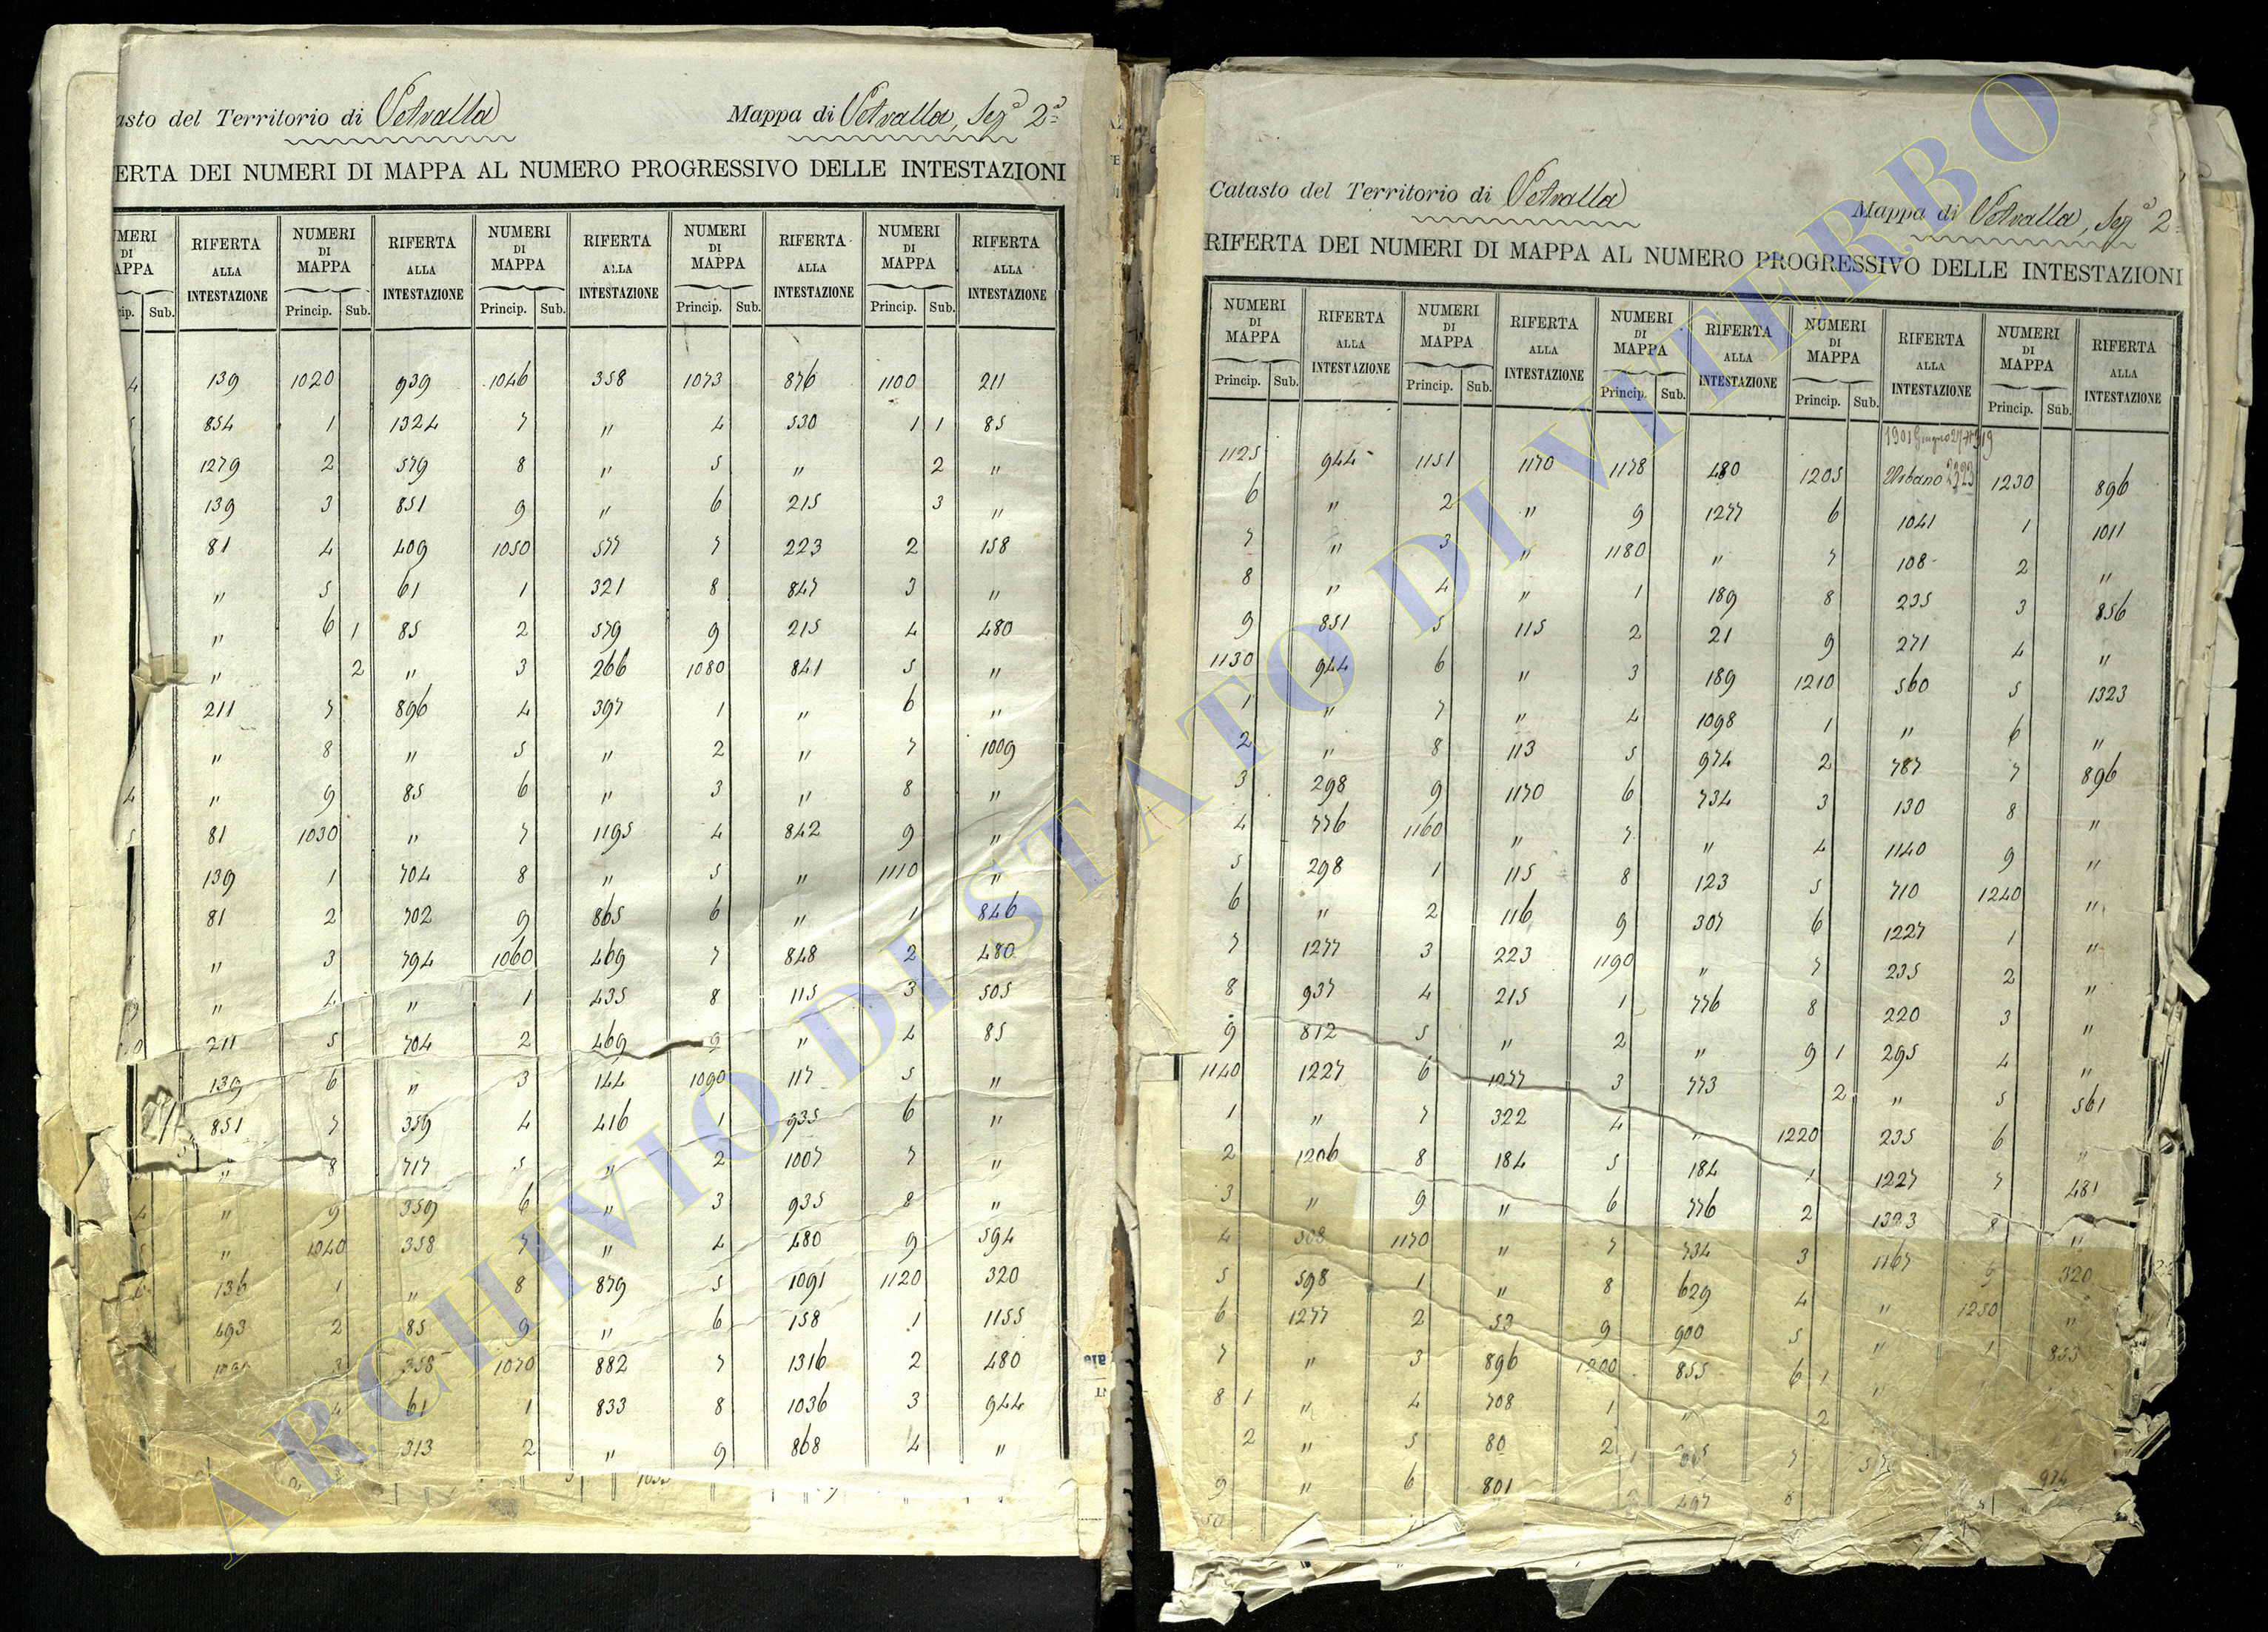 asto del Territorio di Vetralla Mappa di Vetralla, Sez.ª 2ª
ERTA DEI NUMERI DI MAPPA AL NUMERO PROGRESSIVO DELLE INTESTAZIONI
MERI DI APPA RIFERTA ALLA INTESTAZIONE NUMERI DI MAPPA RIFERTA ALLA INTESTAZIONE NUMERI DI MAPPA RIFERTA ALLA INTESTAZIONE NUMERI DI MAPPA RIFERTA ALLA INTESTAZIONE NUMERI DI MAPPA RIFERTA ALLA INTESTAZIONE
cip. Sub. Princip. Sub. Princip. Sub. Princip. Sub. Princip. Sub.
4 139 1020 939 1046 358 1073 876 1100 211
854 1 1324 7 " 4 530 1 1 85
1279 2 579 8 " 5 " 2 "
139 3 851 9 " 6 215 3 "
81 4 409 1050 577 7 223 2 158
" 5 61 1 321 8 847 3 "
" 6 1 85 2 579 9 215 4 480
" 2 " 3 266 1080 841 5 "
211 7 896 4 397 1 " 6 "
" 8 " 5 " 2 " 7 1009
4 " 9 85 6 " 3 " 8 "
5 81 1030 " 7 1195 4 842 9 "
139 1 704 8 " 5 " 1110 "
81 2 702 9 865 6 " 1 846
" 3 794 1060 469 7 848 2 480
" 4 " 1 435 8 115 3 505
211 5 704 2 469 9 " 4 85
139 6 " 3 144 1090 117 5 "
851 7 359 4 416 1 935 6 "
" 8 717 5 " 2 1007 7 "
4 " 9 359 6 " 3 935 8 "
5 " 1040 358 7 " 4 480 9 594
6 136 1 " 8 879 5 1091 1120 320
493 2 85 9 " 6 158 1 1155
3 358 1070 882 7 1316 2 480
4 61 1 833 8 1036 3 944
313 2 " 9 868 4 "
Catasto del Territorio di Vetralla Mappa di Vetralla, Sez.ª 2
RIFERTA DEI NUMERI DI MAPPA AL NUMERO PROGRESSIVO DELLE INTESTAZIONI
NUMERI DI MAPPA RIFERTA ALLA INTESTAZIONE NUMERI DI MAPPA RIFERTA ALLA INTESTAZIONE NUMERI DI MAPPA RIFERTA ALLA INTESTAZIONE NUMERI DI MAPPA RIFERTA ALLA INTESTAZIONE NUMERI DI MAPPA RIFERTA ALLA INTESTAZIONE
Princip. Sub. Princip. Sub. Princip. Sub. Princip. Sub. Princip. Sub.
1901 Giugno 27
1125 944 1151 1170 1178 480 1205 Urbano 2323 1230 896
6 " 2 " 9 1277 6 1041 1 1011
7 " 3 " 1180 " 7 108 2 "
8 " 4 " 1 189 8 235 3 856
9 851 5 115 2 21 9 271 4 "
1130 944 6 " 3 189 1210 560 5 1323
1 " 7 " 4 1098 1 " 6 "
2 " 8 113 5 974 2 787 7 896
3 298 9 1170 6 734 3 130 8 "
4 776 1160 " 7 " 4 1140 9 "
5 298 1 115 8 123 5 710 1240 "
6 " 2 116 9 307 6 1227 1 "
7 1277 3 223 1190 " 7 235 2 "
8 937 4 215 1 776 8 220 3 "
9 812 5 " 2 " 9 1 295 4 "
1140 1227 6 1077 3 773 2 " 5 561
1 " 7 322 4 " 1220 235 6 "
2 1206 8 184 5 184 1 1227 7 481
3 " 9 " 6 776 2 1323 8 "
4 508 1170 " 7 734 3 1167 9 320
5 598 1 " 8 629 4 " 1250 "
6 1277 2 53 9 900 5 " 1 853
7 " 3 896 1200 855 6 1 "
8 1 " 4 708 1 " 2
2 " 5 80 2 7
9 " 6 801 497 8 974
ARCHIVIO DI STATO DI VITERBO